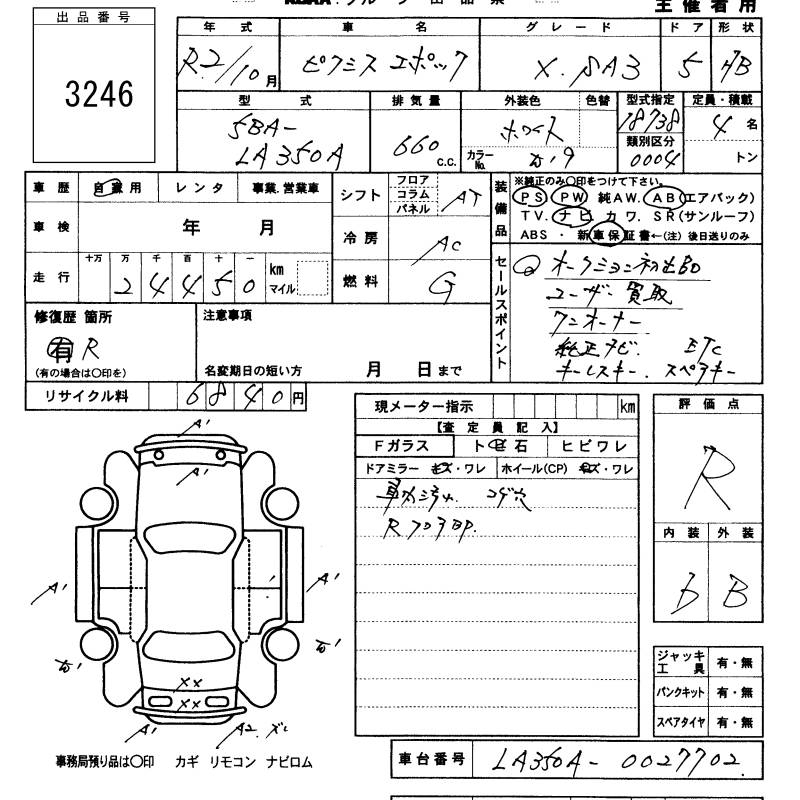 主催者用
出品番号
3246
年式 車名 グレード ドア 形状
R2/10月 ピクシス エポック X.SA3 5 HB
型式 排気量 外装色 色替 型式指定 定員・積載
5BA-
LA350A
660 C.C.
ホワイト
カラーNo.
18738
類別区分
0004
4名
トン
車歴 自家用 レンタ 事業.営業車
車検 年 月
走行 十万 万 千 百 十 一
2 4 4 5 0 km マイル
シフト フロア コラム パネル AT
冷房 AC
燃料 G
装備品
※純正のみ〇印をつけて下さい。
PS PW 純AW. AB(エアバック)
TV. ナビ カワ. SR(サンルーフ)
ABS・新車保証書←(注) 後日送りのみ
セールスポイント
オークション初出品
ユーザー買取
ワンオーナー
純正ナビ. ETC
キーレスキー. スペアキー
修復歴 箇所
有 R
(有の場合は〇印を)
注意事項
名変期日の短い方 月 日まで
リサイクル料 6840円
現メーター指示 km
【査定員記入】
Fガラス トビ石 ヒビワレ
ドアミラー キズ・ワレ ホイール(CP) キズ・ワレ
車内汚れ コゲ穴
Rフロア
評価点
R
内装 外装
D B
A'
A'
A' A'
XX
XX
A' A2.ズレ
ジャッキ 工具 有・無
パンクキット 有・無
スペアタイヤ 有・無
事務局預り品は〇印 カギ リモコン ナビロム
車台番号 LA350A-0027702